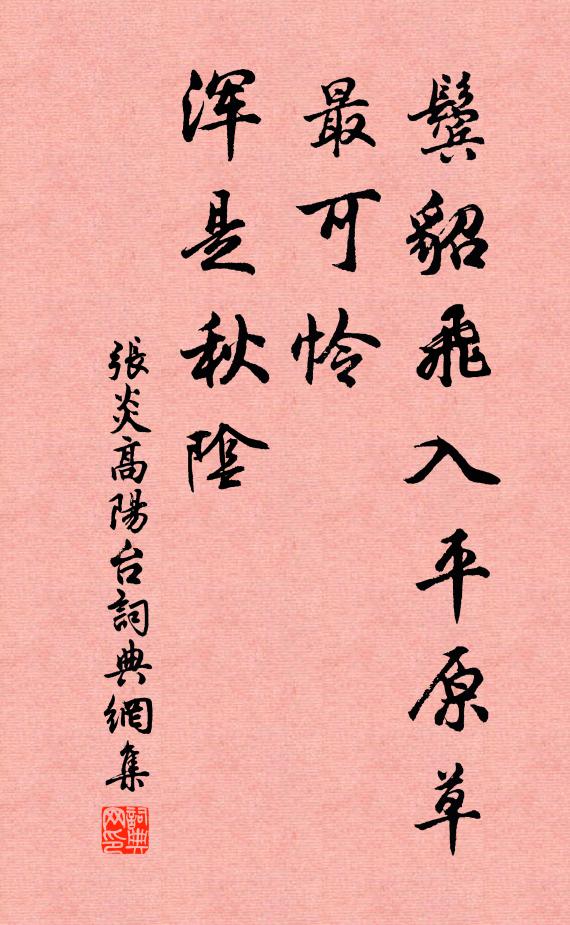 鬓貂飛入平原草
最可怜
渾是秋陰
張炎高陽台詞典網集
詞典网印